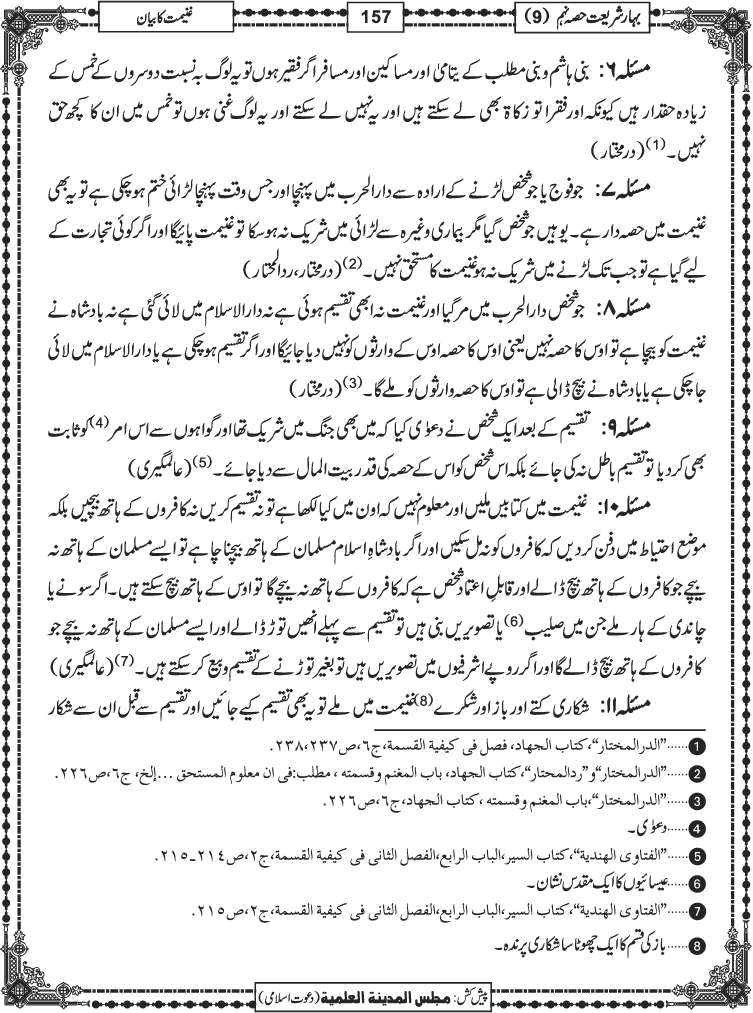 بہارِ شریعت حصہ نہم (9)
157
غنیمت کا بیان
مسئلہ ۶: بنی ہاشم و بنی مطلب کے یتامیٰ اور مساکین اور مسافر اگر فقیر ہوں تو یہ لوگ بہ نسبت دوسروں کے خمس کے
زیادہ حقدار ہیں کیونکہ اور فقرا تو زکاۃ بھی لے سکتے ہیں اور یہ نہیں لے سکتے اور یہ لوگ غنی ہوں تو خمس میں ان کا کچھ حق
نہیں۔(1) (درمختار)
مسئلہ ۷: جو فوج یا جو شخص لڑنے کے ارادہ سے دارالحرب میں پہنچا اور جس وقت پہنچا لڑائی ختم ہو چکی ہے تو یہ بھی
غنیمت میں حصہ دار ہے۔ یوہیں جو شخص گیا مگر بیماری وغیرہ سے لڑائی میں شریک نہ ہو سکا تو غنیمت پائیگا اور اگر کوئی تجارت کے
لیے گیا ہے تو جب تک لڑنے میں شریک نہ ہو غنیمت کا مستحق نہیں۔(2) (درمختار، ردالمحتار)
مسئلہ ۸: جو شخص دارالحرب میں مر گیا اور غنیمت نہ ابھی تقسیم ہوئی ہے نہ دارالاسلام میں لائی گئی ہے نہ بادشاہ نے
غنیمت کو بیچا ہے تو اوس کا حصہ نہیں یعنی اوس کا حصہ اوس کے وارثوں کو نہیں دیا جائیگا اور اگر تقسیم ہو چکی ہے یا دارالاسلام میں لائی
جا چکی ہے یا بادشاہ نے بیچ ڈالی ہے تو اوس کا حصہ وارثوں کو ملے گا۔(3) (درمختار)
مسئلہ ۹: تقسیم کے بعد ایک شخص نے دعویٰ کیا کہ میں بھی جنگ میں شریک تھا اور گواہوں سے اس امر(4) کو ثابت
بھی کر دیا تو تقسیم باطل نہ کی جائے بلکہ اس شخص کو اس کے حصہ کی قدر بیت المال سے دیا جائے۔(5) (عالمگیری)
مسئلہ ۱۰: غنیمت میں کتابیں ملیں اور معلوم نہیں کہ اون میں کیا لکھا ہے تو نہ تقسیم کریں نہ کافروں کے ہاتھ بیچیں بلکہ
موضع احتیاط میں دفن کر دیں کہ کافروں کو نہ مل سکیں اور اگر بادشاہِ اسلام مسلمان کے ہاتھ بیچنا چاہے تو ایسے مسلمان کے ہاتھ نہ
بیچے جو کافروں کے ہاتھ بیچ ڈالے اور قابلِ اعتماد شخص ہے کہ کافروں کے ہاتھ نہ بیچے گا تو اوس کے ہاتھ بیچ سکتے ہیں۔ اگر سونے یا
چاندی کے ہار ملے جن میں صلیب(6) یا تصویریں بنی ہیں تو تقسیم سے پہلے انھیں توڑ ڈالے اور ایسے مسلمان کے ہاتھ نہ بیچے جو
کافروں کے ہاتھ بیچ ڈالے گا اور اگر روپے اشرفیوں میں تصویریں ہیں تو بغیر توڑنے کے تقسیم و بیع کر سکتے ہیں۔(7) (عالمگیری)
مسئلہ ۱۱: شکاری کتے اور باز اور شکرے(8) غنیمت میں ملے تو یہ بھی تقسیم کیے جائیں اور تقسیم سے قبل ان سے شکار
1 ......”الدرالمختار“، کتاب الجھاد، فصل فی کیفیة القسمة، ج٦، ص٢٣٧، ٢٣٨.
2 ......”الدرالمختار“ و ”ردالمحتار“، کتاب الجھاد، باب المغنم وقسمته، مطلب: فی ان معلوم المستحق ... إلخ، ج٦، ص٢٢٦.
3 ......”الدرالمختار“، باب المغنم و قسمته، کتاب الجھاد، ج٦، ص٢٢٦.
4 ......دعویٰ۔
5 ......”الفتاوی الھندیة“، کتاب السیر، الباب الرابع، الفصل الثانی فی کیفیة القسمة، ج٢، ص٢١٤-٢١٥.
6 ......عیسائیوں کا ایک مقدس نشان۔
7 ......”الفتاوی الھندیة“، کتاب السیر، الباب الرابع، الفصل الثانی فی کیفیة القسمة، ج٢، ص٢١٥.
8 ......باز کی قسم کا ایک چھوٹا سا شکاری پرندہ۔
پیش کش: مجلس المدینة العلمیة (دعوت اسلامی)